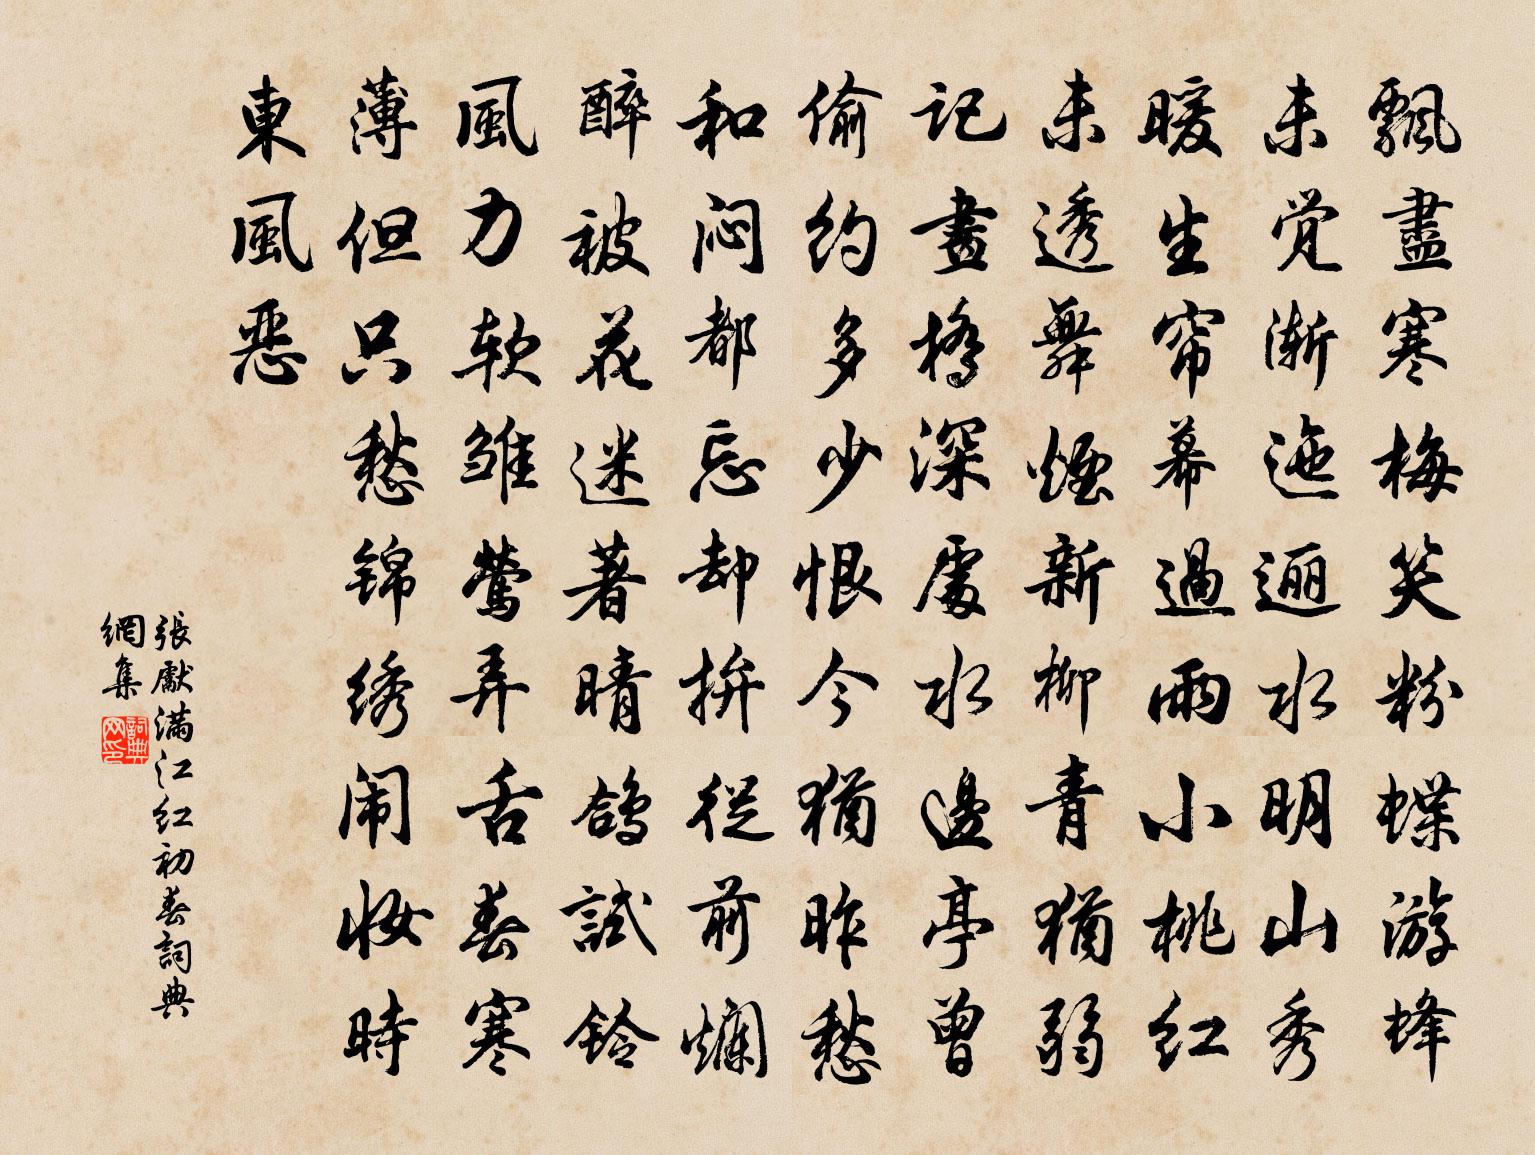 飄盡寒梅笑粉蝶游蜂
未觉漸迤逦水明山秀
暖生帘幕過雨小桃红
未透舞煙新柳青猶弱
记畫橋深處水邊亭曾
偷约多少恨今猶昨愁
和闷都忘却拚從前爛
醉被花迷著晴鸽試铃
風力软雏莺弄舌春寒
薄但只愁锦绣闹妝時
東風恶
張獻满江红初春詞典
網集
詞典网印